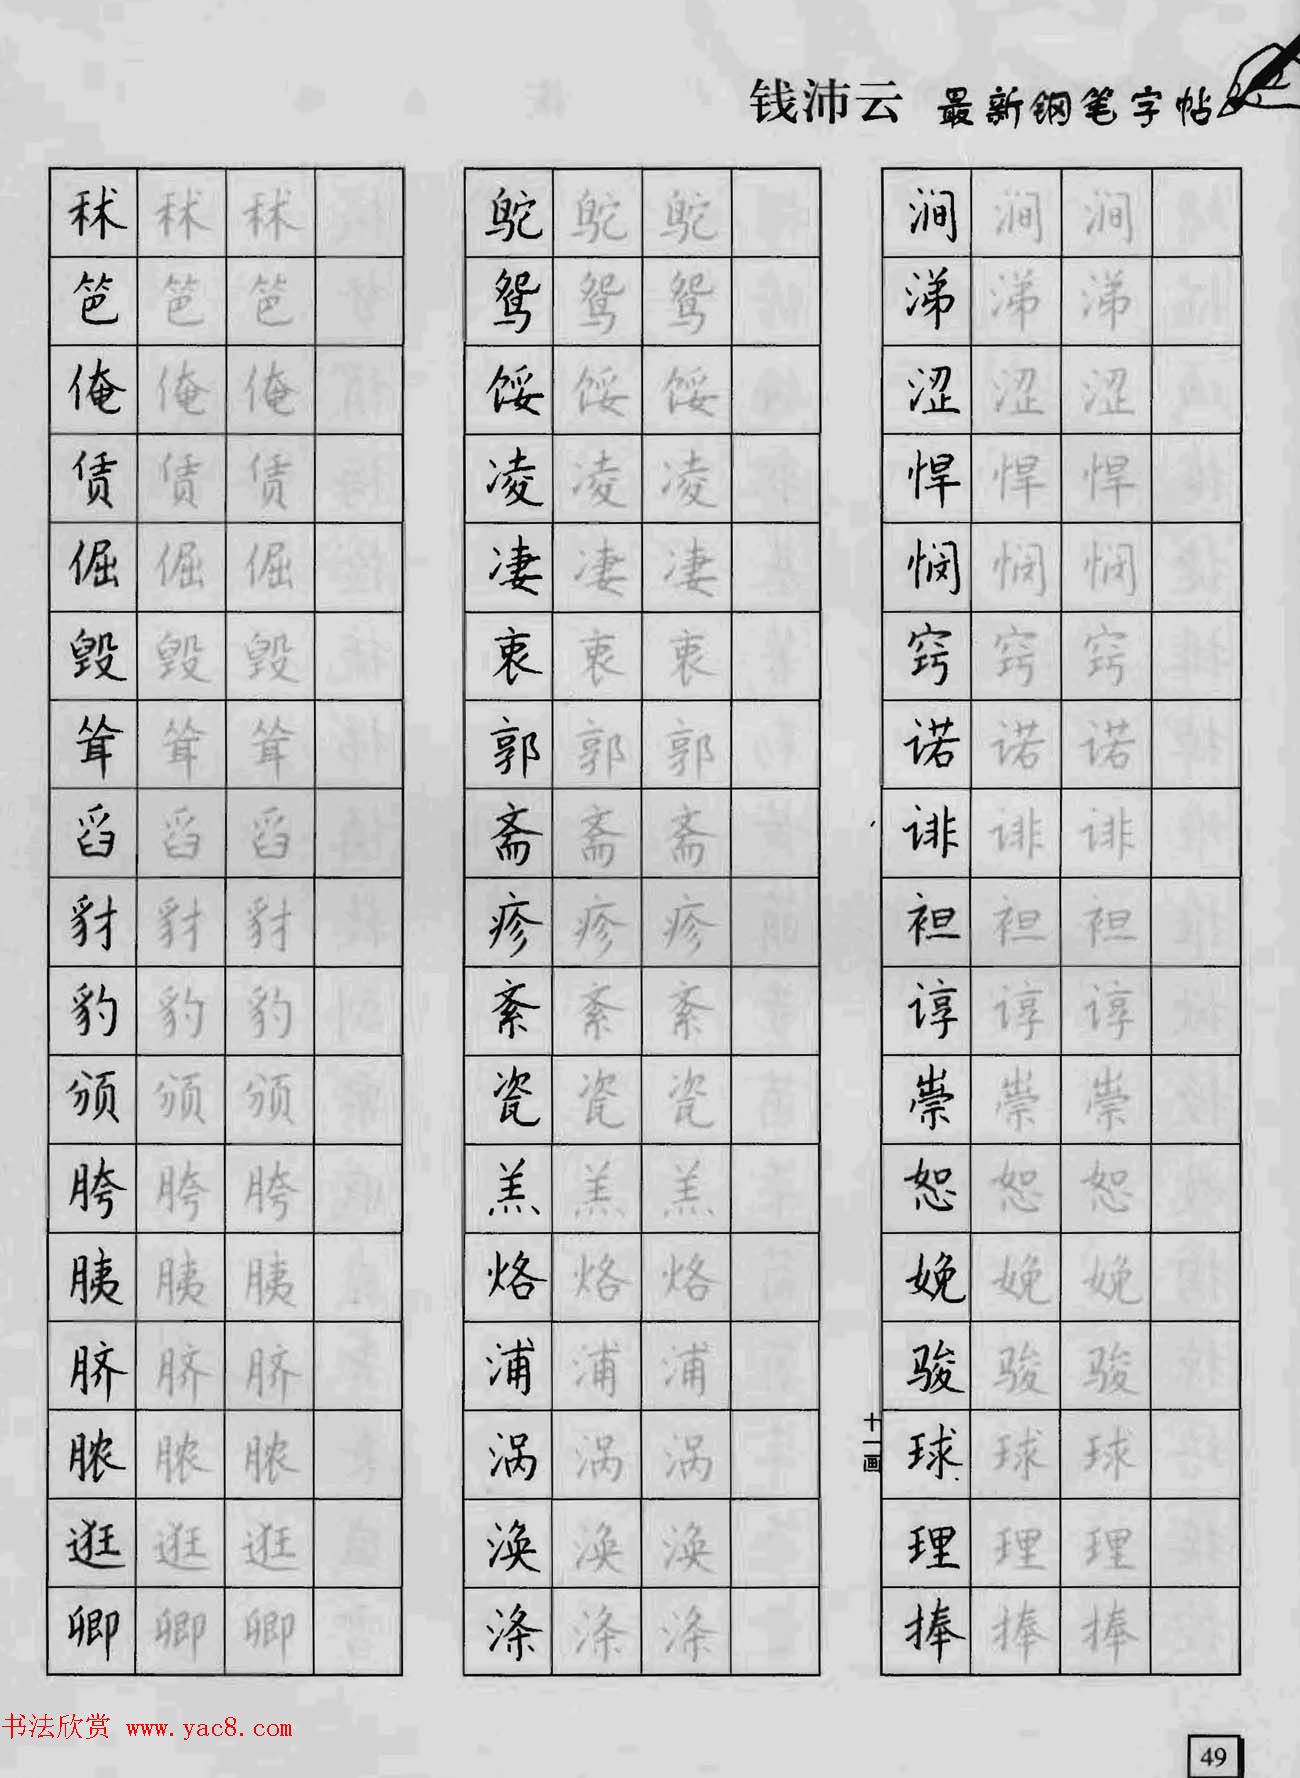 钱沛云 最新钢笔字帖
秫 秫 秫 鸵 鸵 鸵 涧 涧 涧
笆 笆 笆 鸳 鸳 鸳 涕 涕 涕
俺 俺 俺 馁 馁 馁 涩 涩 涩
赁 赁 赁 凌 凌 凌 悍 悍 悍
倔 倔 倔 凄 凄 凄 悯 悯 悯
毁 毁 毁 衷 衷 衷 窍 窍 窍
耸 耸 耸 郭 郭 郭 诺 诺 诺
舀 舀 舀 斋 斋 斋 诽 诽 诽
豺 豺 豺 疹 疹 疹 袒 袒 袒
豹 豹 豹 紊 紊 紊 谆 谆 谆
颁 颁 颁 瓷 瓷 瓷 祟 祟 祟
胯 胯 胯 羔 羔 羔 恕 恕 恕
胰 胰 胰 烙 烙 烙 娩 娩 娩
脐 脐 脐 浦 浦 浦 骏 骏 骏
脓 脓 脓 涡 涡 涡 十一画 球 球 球
逛 逛 逛 涣 涣 涣 理 理 理
卿 卿 卿 涤 涤 涤 捧 捧 捧
书法欣赏 www.yac8.com
49